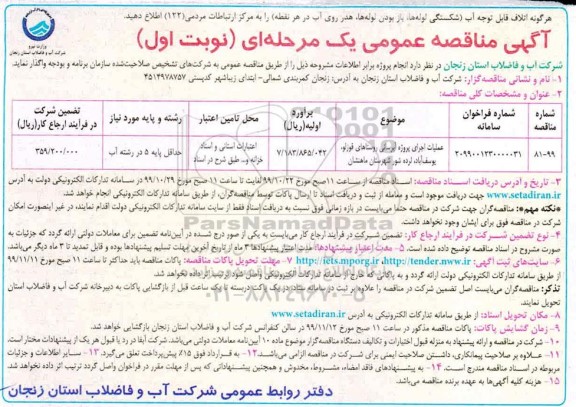 هرگونه اتلاف قابل توجه آب (شکستگی لوله‌ها، باز بودن لوله‌ها، هدر روی آب در هر نقطه) را به مرکز ارتباطات مردمی(۱۲۲) اطلاع دهید.
آگهی مناقصه عمومی یک مرحله‌ای (نوبت اول)
وزارت نیرو
شرکت آب و فاضلاب استان زنجان
شرکت آب و فاضلاب استان زنجان در نظر دارد انجام پروژه برابر اطلاعات مشروحه ذیل را از طریق مناقصه عمومی به شرکت‌های تشخیص صلاحیت‌شده سازمان برنامه و بودجه واگذار نماید.
۱- نام و نشانی مناقصه‌گزار: شرکت آب و فاضلاب استان زنجان به آدرس: زنجان کمربندی شمالی- ابتدای زیباشهر کدپستی ۴۵۱۴۹۷۸۷۵۷
۲- عنوان و مشخصات کلی مناقصه:
شماره مناقصه
شماره فراخوان سامانه
موضوع
برآورد اولیه(ریال)
محل تامین اعتبار
رشته و پایه مورد نیاز
تضمین شرکت در فرآیند ارجاع کار(ریال)
۸۱-۹۹
۲۰۹۹۰۰۱۲۳۰۰۰۰۰۳۱
عملیات اجرای پروژه آبرسانی روستاهای قوزلو، یوسف‌آباد، ارده شور شهرستان ماهنشان
۷/۱۸۳/۸۶۵/۰۴۲
اعتبارات استانی و اسناد خزانه و... طبق شرح در اسناد
حداقل پایه ۵ در رشته آب
۳۵۹/۲۰۰/۰۰۰
۳- تاریخ و آدرس دریافت اسناد مناقصه: اسناد مناقصه از ساعت ۱۱ صبح مورخ ۹۹/۱۰/۲۲ لغایت تا ساعت ۱۱ صبح مورخ ۹۹/۱۰/۲۹ در سامانه تدارکات الکترونیکی دولت به آدرس
www.setadiran.ir جهت دریافت موجود است و معامله از ثبت و دریافت اسناد تا ارسال پاکات توسط مناقصه‌گران، از طریق سامانه تدارکات الکترونیکی انجام خواهد شد.
*نکته مهم*: مناقصه‌گران جهت شرکت در مناقصه حتما می‌بایست در بازه زمانی فوق نسبت به دریافت اسناد فقط از سایت سامانه تدارکات الکترونیکی دولت اقدام نمایند، در غیر اینصورت امکان
شرکت در مناقصه فوق برای ایشان وجود نخواهد داشت.
۴- نوع تضمین شرکت در فرآیند ارجاع کار: تضمین شرکت در فرآیند ارجاع کار می‌بایست به یکی از صور درج شده در آیین‌نامه تضمین برای معاملات دولتی ارائه گردد که جزئیات به
صورت مشروح در اسناد مناقصه توضیح داده شده است. ۵- مدت اعتبار پیشنهادها: مدت اعتبار پیشنهادها ۳ ماه از تاریخ آخرین مهلت تسلیم پیشنهادها بوده و قابل تمدید تا ۳ ماه دیگر می‌باشد.
۶- سایت‌های ثبت آگهی: http://iets.mporg.ir ،http://tender.nww.ir ۷- مهلت تحویل پاکات مناقصه: پاکات مناقصه باید حداکثر تا ساعت ۱۱ صبح مورخ ۹۹/۱۱/۱۱
از طریق سامانه تدارکات الکترونیکی دولت ارائه گردد و به پاکاتی که خارج از سامانه تدارکات الکترونیکی واصل شود ترتیب اثر داده نخواهد شد.
تذکر: مناقصه‌گران می‌بایست اصل تضمین شرکت در مناقصه را علاوه بر ثبت در سامانه ستاد، در یک پاکت دربسته تا یک ساعت قبل از بازگشایی پاکات به دبیرخانه شرکت آب و فاضلاب استان زنجان
تحویل نمایند.
۸- مکان تحویل اسناد: از طریق سامانه تدارکات الکترونیکی به آدرس www.setadiran.ir
۹- زمان گشایش پاکات: پاکات مناقصه مذکور در ساعت ۱۱ صبح مورخ ۹۹/۱۱/۱۲ در سالن کنفرانس شرکت آب و فاضلاب استان زنجان بازگشایی خواهد شد.
۱۰- شرکت در مناقصه و ارائه پیشنهاد به منزله قبول اختیارات و تکالیف دستگاه مناقصه‌گزار موضوع ماده ۱۰ آیین‌نامه معاملات دولتی می‌باشد. شرکت آبفا در رد یا قبول هر یک از پیشنهادات مختار است.
۱۱- علاوه بر صلاحیت پیمانکاری، داشتن صلاحیت ایمنی برای شرکت در مناقصه الزامی می‌باشد. ۱۲- به قرارداد فوق ۱۵٪ پیش‌پرداخت تعلق می‌گیرد. ۱۳- سایر اطلاعات و جزئیات
مربوطه در اسناد مناقصه مندرج است. ۱۴- به پیشنهادهای فاقد امضاء، مشروط، مخدوش و همچنین پیشنهاداتی که پس از مهلت مقرر در فراخوان واصل گردد ترتیب اثر داده نخواهد شد.
۱۵- هزینه کلیه آگهی‌ها به عهده برنده مناقصه می‌باشد.
دفتر روابط عمومی شرکت آب و فاضلاب استان زنجان
ParsNamadData
۰۲۱-۸۸۳۴۹۶۷۰-۵